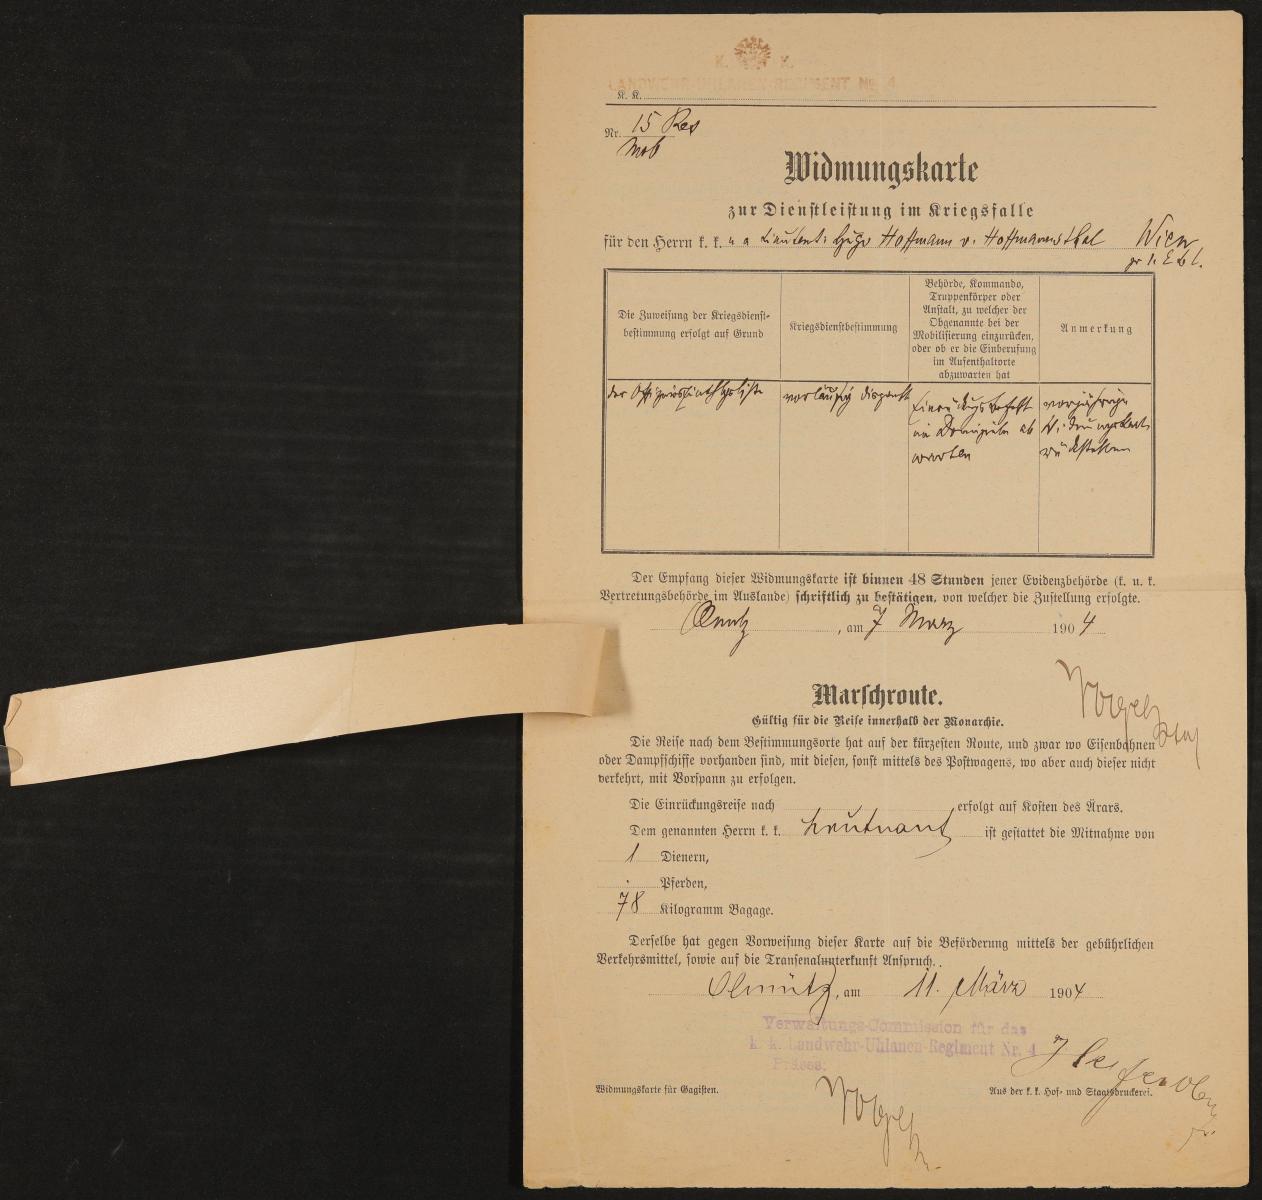 K. K.
LANDWEHR-UHLANEN-REGIMENT No 4
K. K.
Nr. 15 Res
Mob
Widmungskarte
zur Dienstleistung im Kriegsfalle
für den Herrn k. k. u a Lieutent: Hugo Hoffmann v. Hoffmannsthal Wien
Die Zuweisung der Kriegsdienst-
bestimmung erfolgt auf Grund
Kriegsdienstbestimmung
Behörde, Kommando,
Truppenkörper oder
Anstalt, zu welcher der
Obgenannte bei der
Mobilisierung einzurücken,
oder ob er die Einberufung
im Aufenthaltorte
abzuwarten hat
Anmerkung
der
vorläufig
Einrückungsbefehl
im Domizile ab
warten
vorjährige
Widmungskarte
rückstellen
Der Empfang dieser Widmungskarte ist binnen 48 Stunden jener Evidenzbehörde (k. u. k.
Vertretungsbehörde im Auslande) schriftlich zu bestätigen, von welcher die Zustellung erfolgte.
Olmütz, am 7 März 1904
Vogel
Marschroute.
Gültig für die Reise innerhalb der Monarchie.
Die Reise nach dem Bestimmungsorte hat auf der kürzesten Route, und zwar wo Eisenbahnen
oder Dampfschiffe vorhanden sind, mit diesen, sonst mittels des Postwagens, wo aber auch dieser nicht
verkehrt, mit Vorspann zu erfolgen.
Die Einrückungsreise nach erfolgt auf Kosten des Ärars.
Dem genannten Herrn k. k. Leutnant ist gestattet die Mitnahme von
1 Dienern,
. Pferden,
78 Kilogramm Bagage.
Derselbe hat gegen Vorweisung dieser Karte auf die Beförderung mittels der gebührlichen
Verkehrsmittel, sowie auf die Transenalunterkunft Anspruch.
Olmütz, am 11. März 1904
Verwaltungs-Commission für das
k. k. Landwehr-Uhlanen-Regiment Nr. 4
Präses:
Widmungskarte für Gagisten.
Aus der k. k. Hof- und Staatsdruckerei.
Vogel